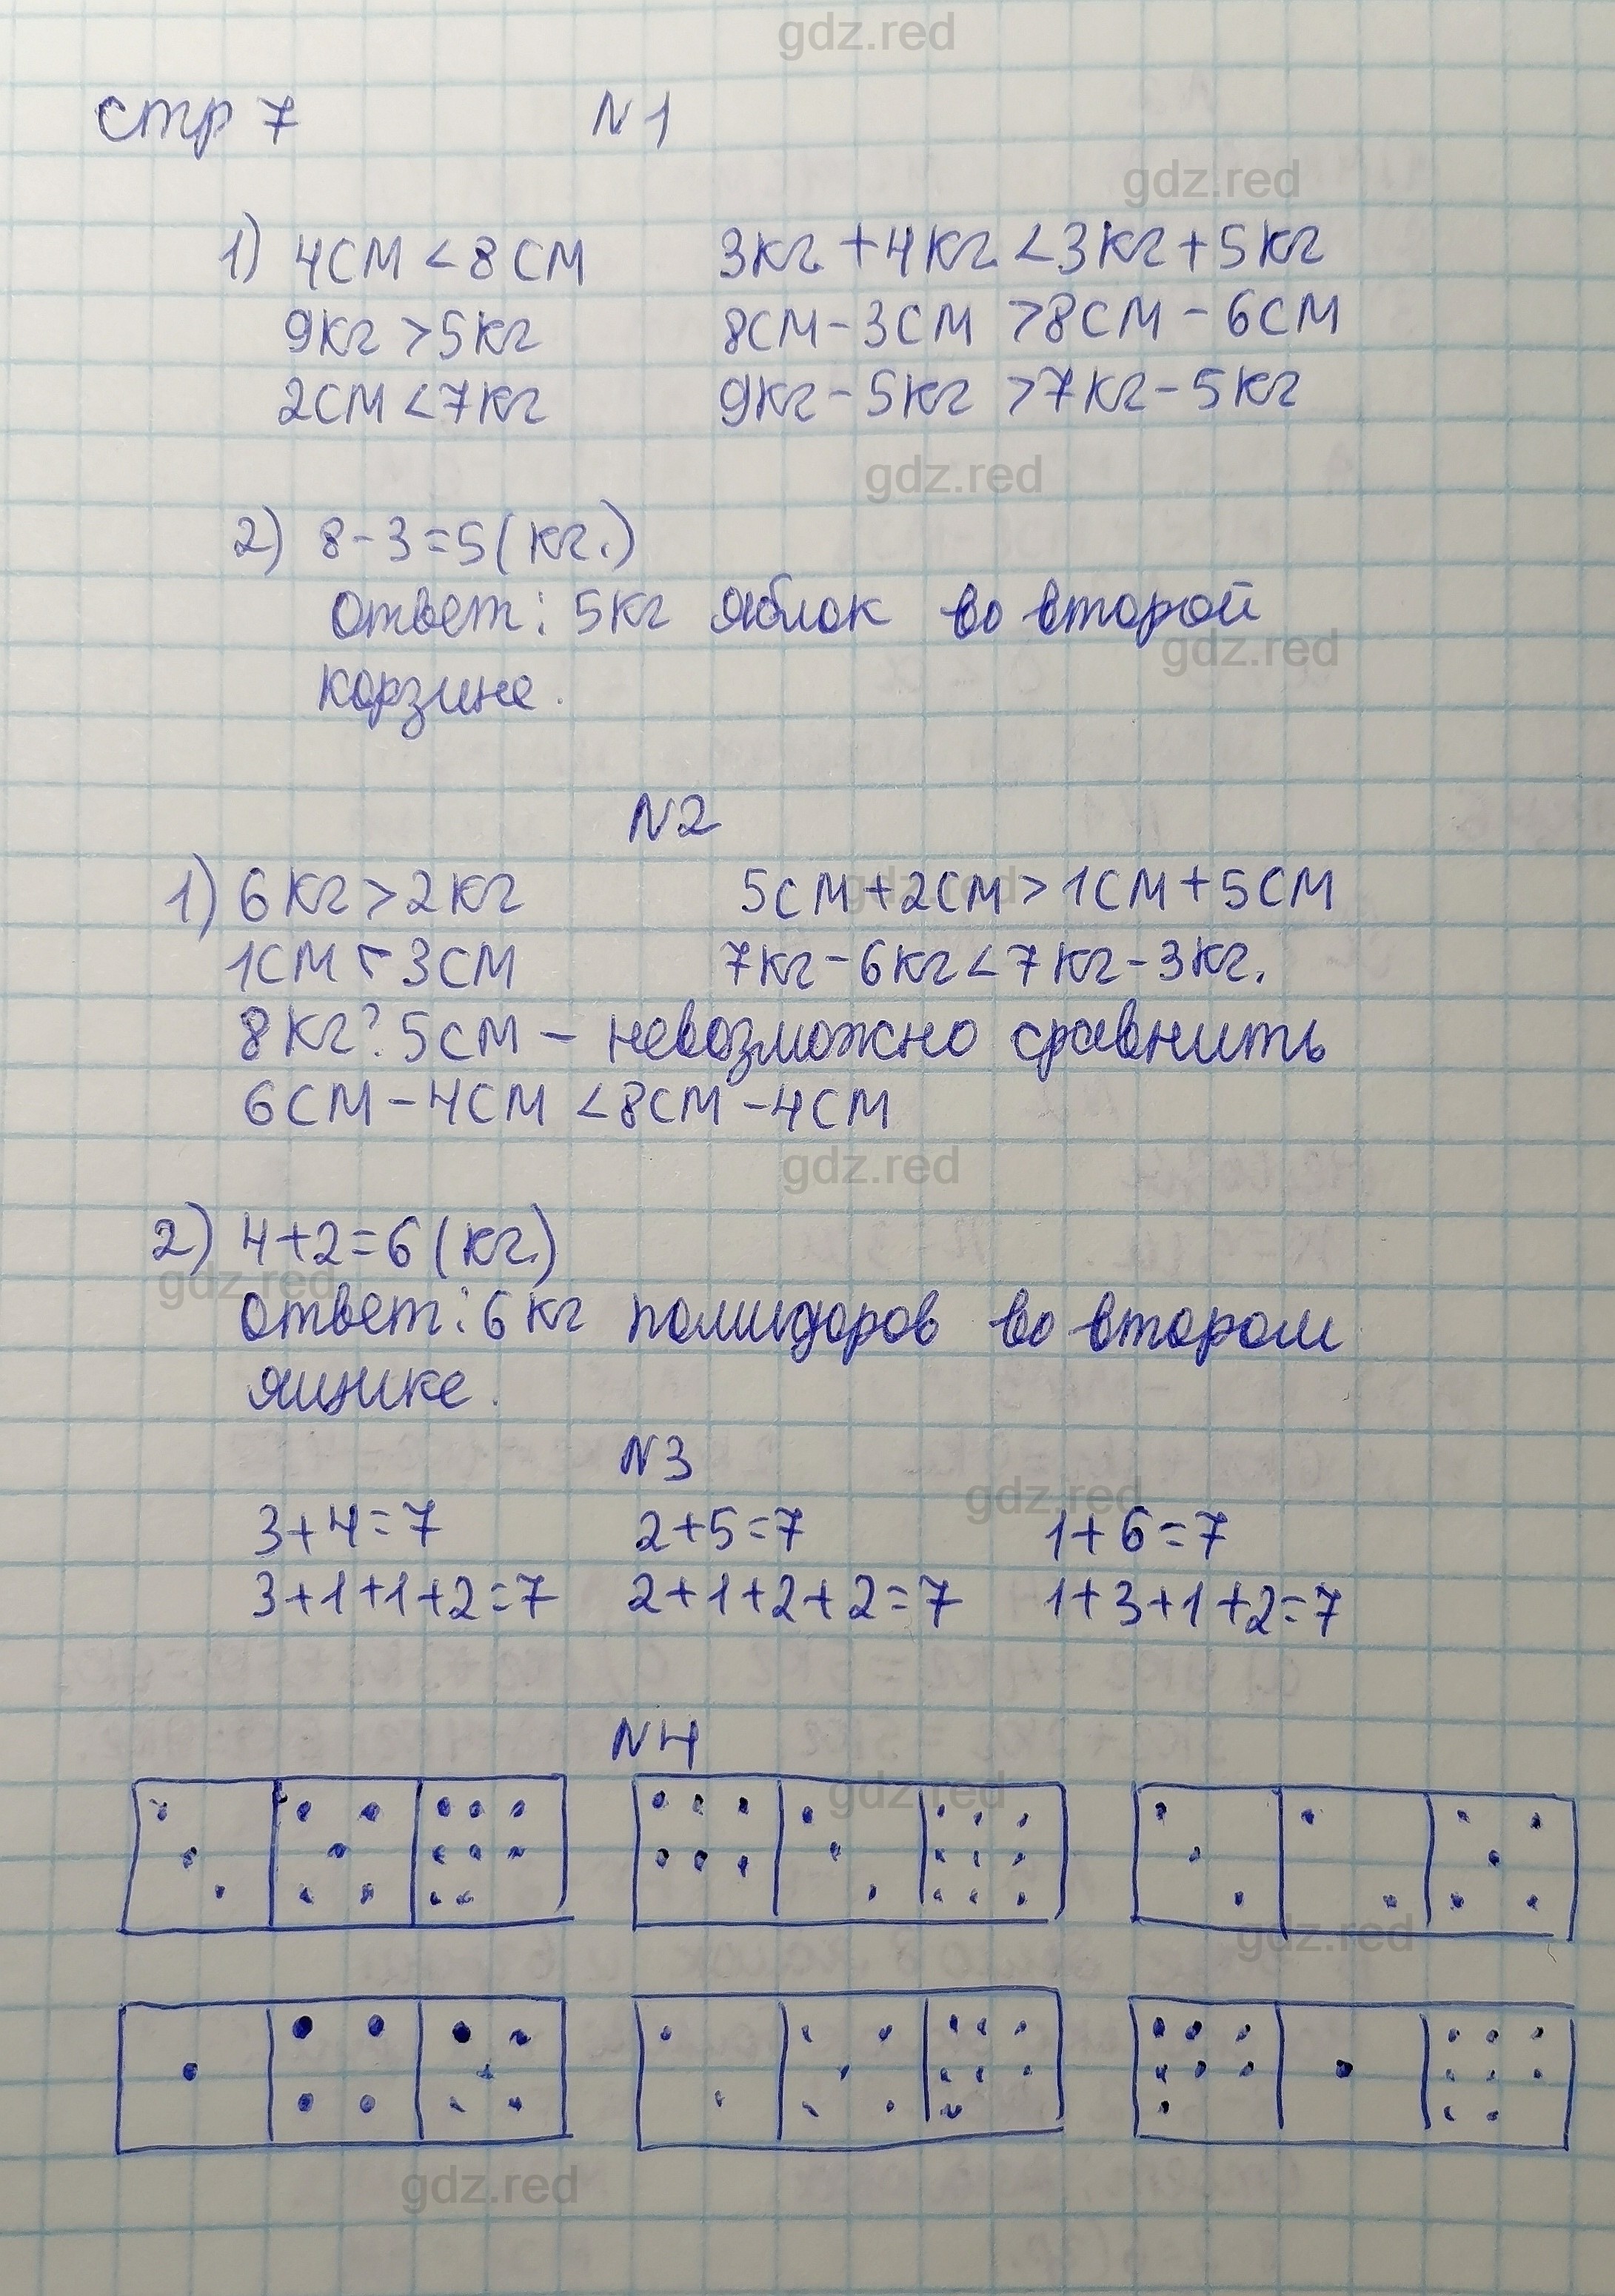 стр 7 N1
1) 4см < 8см 3кг + 4кг < 3кг + 5кг
9кг > 5кг 8см - 3см > 8см - 6см
2см < 7кг 9кг - 5кг > 7кг - 5кг
2) 8 - 3 = 5 (кг.)
Ответ: 5кг яблок во второй
корзине.
N2
1) 6кг > 2кг 5см + 2см > 1см + 5см
1см < 3см 7кг - 6кг < 7кг - 3кг.
8кг ? 5см - невозможно сравнить
6см - 4см < 8см - 4см
2) 4 + 2 = 6 (кг.)
Ответ: 6кг помидоров во втором
ящике.
N3
3 + 4 = 7 2 + 5 = 7 1 + 6 = 7
3 + 1 + 1 + 2 = 7 2 + 1 + 2 + 2 = 7 1 + 3 + 1 + 2 = 7
N4
gdz.red
gdz.red
gdz.red
gdz.red
gdz.red
gdz.red
gdz.red
gdz.red
gdz.red
gdz.red
gdz.red